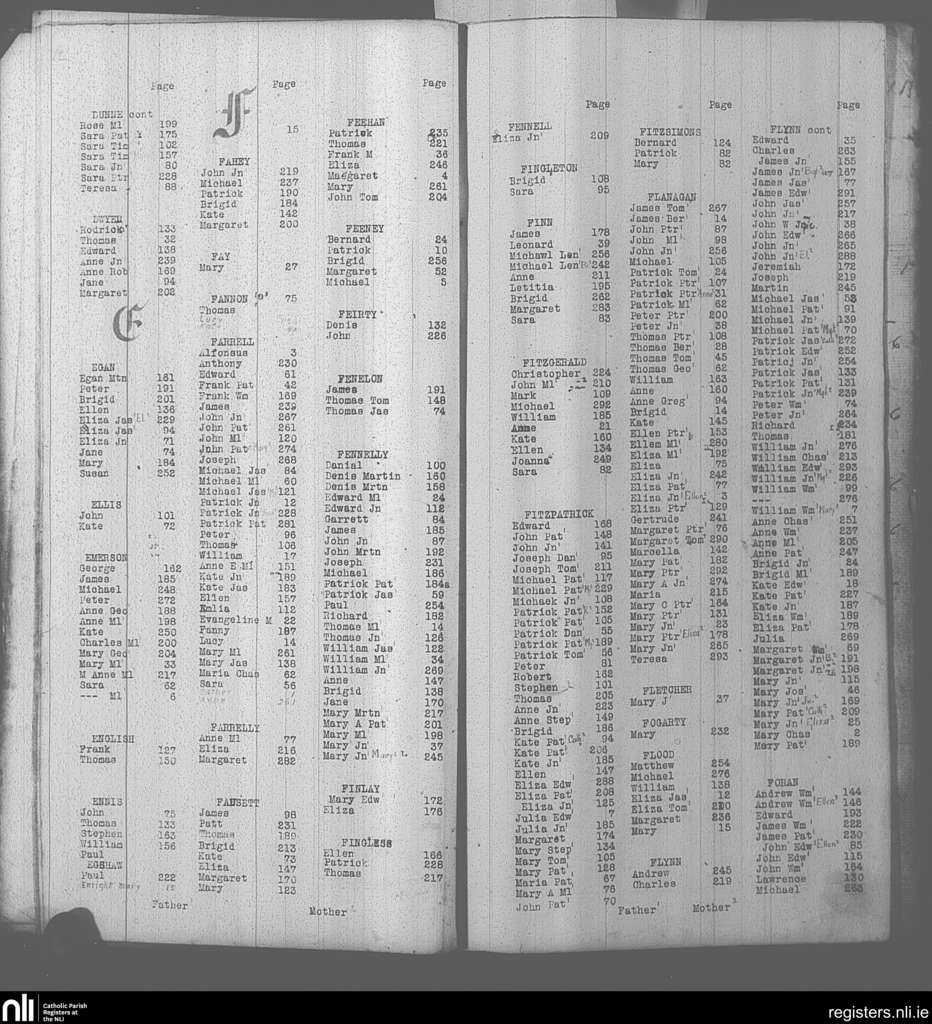 Page
DUNNE cont
Rose Ml 199
Sara Pat 175
Sara Tim 102
Sara Tim 157
Sara Jn 80
Sara Ptr 228
Teresa 88
DWYER
Rodrick 133
Thomas 32
Edward 138
Anne Jn 239
Anne Rob 169
Jane 94
Margaret 202
E
EGAN
Egan Mtn 161
Peter 191
Brigid 201
Ellen 136
Eliza Jas 229
Eliza Jas 94
Eliza Jn 71
Jane 74
Mary 184
Susan 252
ELLIS
John 101
Kate 72
EMERSON
George 162
James 185
Michael 248
Peter 272
Anne Geo 188
Anne Ml 198
Kate 250
Charles Ml 200
Mary Geo 204
Mary Ml 33
M Anne Ml 217
Sara 62
--- Ml 6
ENGLISH
Frank 127
Thomas 130
ENNIS
John 75
Thomas 133
Stephen 163
William 156
Paul
EGSHAW
Paul 222
Enright Mary 15
Father
Page
F
15
FAHEY
John Jn 219
Michael 237
Patrick 190
Brigid 184
Kate 142
Margaret 200
FAY
Mary 27
FANNON 75
Thomas
Lucy
FARRELL
Alfonsus 3
Anthony 230
Edward 61
Frank Pat 42
Frank Wm 169
James 239
John Jn 267
John Pat 261
John Ml 120
John Pat 274
Joseph 268
Michael Jas 84
Michael Ml 60
Michael Jas 121
Patrick Jn 12
Patrick Jn 228
Patrick Pat 281
Peter 96
Thomas 106
William 17
Anne E Ml 151
Kate Jn 189
Kate Jas 183
Ellen 157
Emlia 112
Evangeline M 22
Fanny 187
Lucy 14
Mary Ml 261
Mary Jas 138
Maria Chas 62
Sara 56
FARRELLY
Anne Ml 77
Eliza 216
Margaret 282
FAUSETT
James 98
Patt 231
Thomas 189
Brigid 213
Kate 73
Eliza 147
Margaret 170
Mary 123
Page
FEEHAN
Patrick 235
Thomas 221
Frank M 36
Eliza 246
Margaret 4
Mary 261
John Tom 204
FEENEY
Bernard 24
Patrick 10
Brigid 256
Margaret 52
Michael 5
FEIRTY
Denis 132
John 226
FENELON
James 191
Thomas Tom 148
Thomas Jas 74
FENNELLY
Danial 100
Denis Martin 160
Denis Mrtn 158
Edward Ml 24
Edward Jn 112
Garrett 84
James 185
John Jn 87
John Mrtn 192
Joseph 231
Michael 186
Patrick Pat 184a
Patrick Jas 59
Paul 254
Richard 182
Thomas Ml 14
Thomas Jn 126
William Jas 122
William Ml 34
William Jn 269
Anne 147
Brigid 138
Jane 170
Mary Mrtn 217
Mary A Pat 201
Mary Ml 198
Mary Jn 37
Mary Jn 245
FINLAY
Mary Edw 172
Eliza 176
FINGLESS
Ellen 166
Patrick 228
Thomas 217
Mother
Page
FENNELL
Eliza Jn 209
FINGLETON
Brigid 108
Sara 95
FINN
James 178
Leonard 39
Michawl Len 256
Michael Len 242
Anne 211
Letitia 195
Brigid 262
Margaret 283
Sara 83
FITZGERALD
Christopher 224
John Ml 210
Mark 109
Michael 292
William 185
Anne 21
Kate 160
Ellen 134
Joanna 249
Sara 82
FITZPATRICK
Edward 168
John Pat 148
John Jn 141
Joseph Dan 95
Joseph Tom 211
Michael Pat 117
Michael Pat 229
Michaek Jn 108
Patrick Pat 152
Patrick Pat 105
Patrick Dan 55
Patrick Pat 189
Patrick Tom 56
Peter 81
Robert 162
Stephen 101
Thomas 205
Anne Jn 223
Anne Step 149
Brigid 186
Kate Pat 94
Kate Pat 206
Kate Jn 185
Ellen 147
Eliza Edw 288
Eliza Pat 208
Eliza Jn 125
Julia Edw 7
Julia Jn 185
Margaret 174
Mary Step 134
Mary Tom 105
Mary Pat 128
Maria Pat 67
Mary A Ml 76
John Pat 70
Page
FITZSIMONS
Bernard 124
Patrick 82
Mary 82
FLANAGAN
James Tom 267
James Ber 14
John Ptr 87
John Ml 98
John Jn 256
Michael 105
Patrick Tom 24
Patrick Ptr 107
Patrick Ptr 31
Patrick Ml 62
Peter Ptr 200
Peter Jn 38
Thomas Ptr 108
Thomas Ber 28
Thomas Tom 45
Thomas Geo 62
William 163
Anne 160
Anne Greg 94
Brigid 14
Kate 145
Ellen Ptr 153
Ellem Ml 280
Eliza Ml 192
Eliza 75
Eliza Jn 242
Eliza Pat 77
Eliza Jn Ellen 3
Eliza Ptr 129
Gertrude 241
Margaret Ptr 76
Margaret Tom 290
Marcella 142
Mary Pat 182
Mary Ptr 292
Mary A Jn 274
Maria 215
Mary C Ptr 164
Mary Ptr 131
Mary Jn 23
Mary Ptr 178
Mary Jn 265
Teresa 293
FLETCHER
Mary J 37
FOGARTY
Mary 232
FLOOD
Matthew 254
Michael 276
William 138
Eliza Jas 12
Eliza Tom 220
Margaret 236
Mary 15
FLYNN
Andrew 245
Charles 219
Father Mother
Page
FLYNN cont
Edward 35
Charles 263
James Jn 155
James Jn 167
James Jas 77
James Edw 291
John Jas 257
John Jn 217
John W 38
John Edw 266
John Jn 265
John Jn 288
Jeremiah 172
Joseph 219
Martin 245
Michael Jas 53
Michael Pat 91
Michael Jn 139
Michael Pat 70
Patrick Jas 272
Patrick Edw 252
Patricj Jn 254
Patrick Jas 133
Patrick Pat 131
Patrick Jn 239
Peter Wm 74
Peter Jn 264
Richard 234
Thomas 181
William Jn 276
William Chas 213
William Edw 293
William Jn 226
William Wm 99
--- 276
William Wm Mary 7
Anne Chas 251
Anne Wm 237
Anne Ml 205
Anne Pat 247
Brigid Jn 24
Brigid Ml 189
Kate Edw 18
Kate Pat 227
Kate Jn 187
Eliza Wm 189
Eliza Pat 178
Julia 269
Margaret Wm 69
Margaret Jn 191
Margaret Jn 198
Mary Jn 115
Mary Jos 46
Mary Jn 169
Mary Pat 209
Mary Jn 25
Mary Chas 2
Mary Pat 189
FOHAN
Andrew Wm 144
Andrew Wm Ellen 146
Edward 193
James Wm 222
James Pat 230
John Edw Ellen 85
John Edw 115
John Wm 164
Lawrence 130
Michael 263
nli
Catholic Parish
Registers at
the NLI
registers.nli.ie